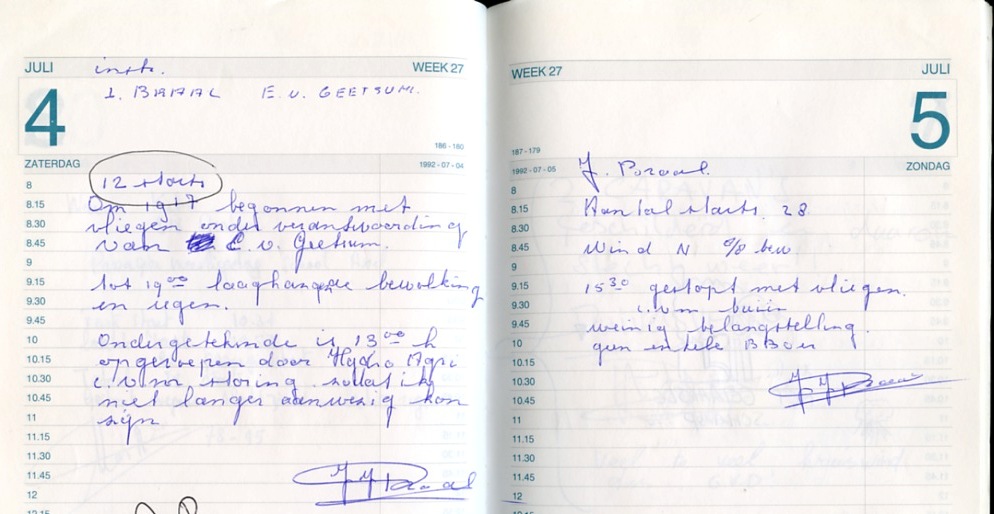 JULI
WEEK 27
instr.
J. BRAAL E. v. GEETSUM.
4
186 - 180
ZATERDAG
1992 - 07 - 04
8
12 starts
8.15
Om 1917 begonnen met
8.30
vliegen onder verantwoording
8.45
van E. v. Geetsum.
9
9.15
tot 19 00 laaghangende bewolking
9.30
en regen.
9.45
10
Ondergetekende is 13 00 h
10.15
opgeroepen door Hydro Agri
10.30
i.v.m storing zodat ik
10.45
niet langer aanwezig kon
11
zijn
11.15
11.30
11.45
JJ Braal
12
WEEK 27
JULI
5
187 - 179
1992 - 07 - 05
ZONDAG
J. Braal.
8
8.15
Aantal starts. 28.
8.30
8.45
Wind N 0/8 bew
9
9.15
15 30 gestopt met vliegen.
9.30
i.v.m buiïn
9.45
weinig belangstelling.
10
geen enkele BBoer
10.15
10.30
JJ Braal
10.45
11
11.15
11.30
11.45
12